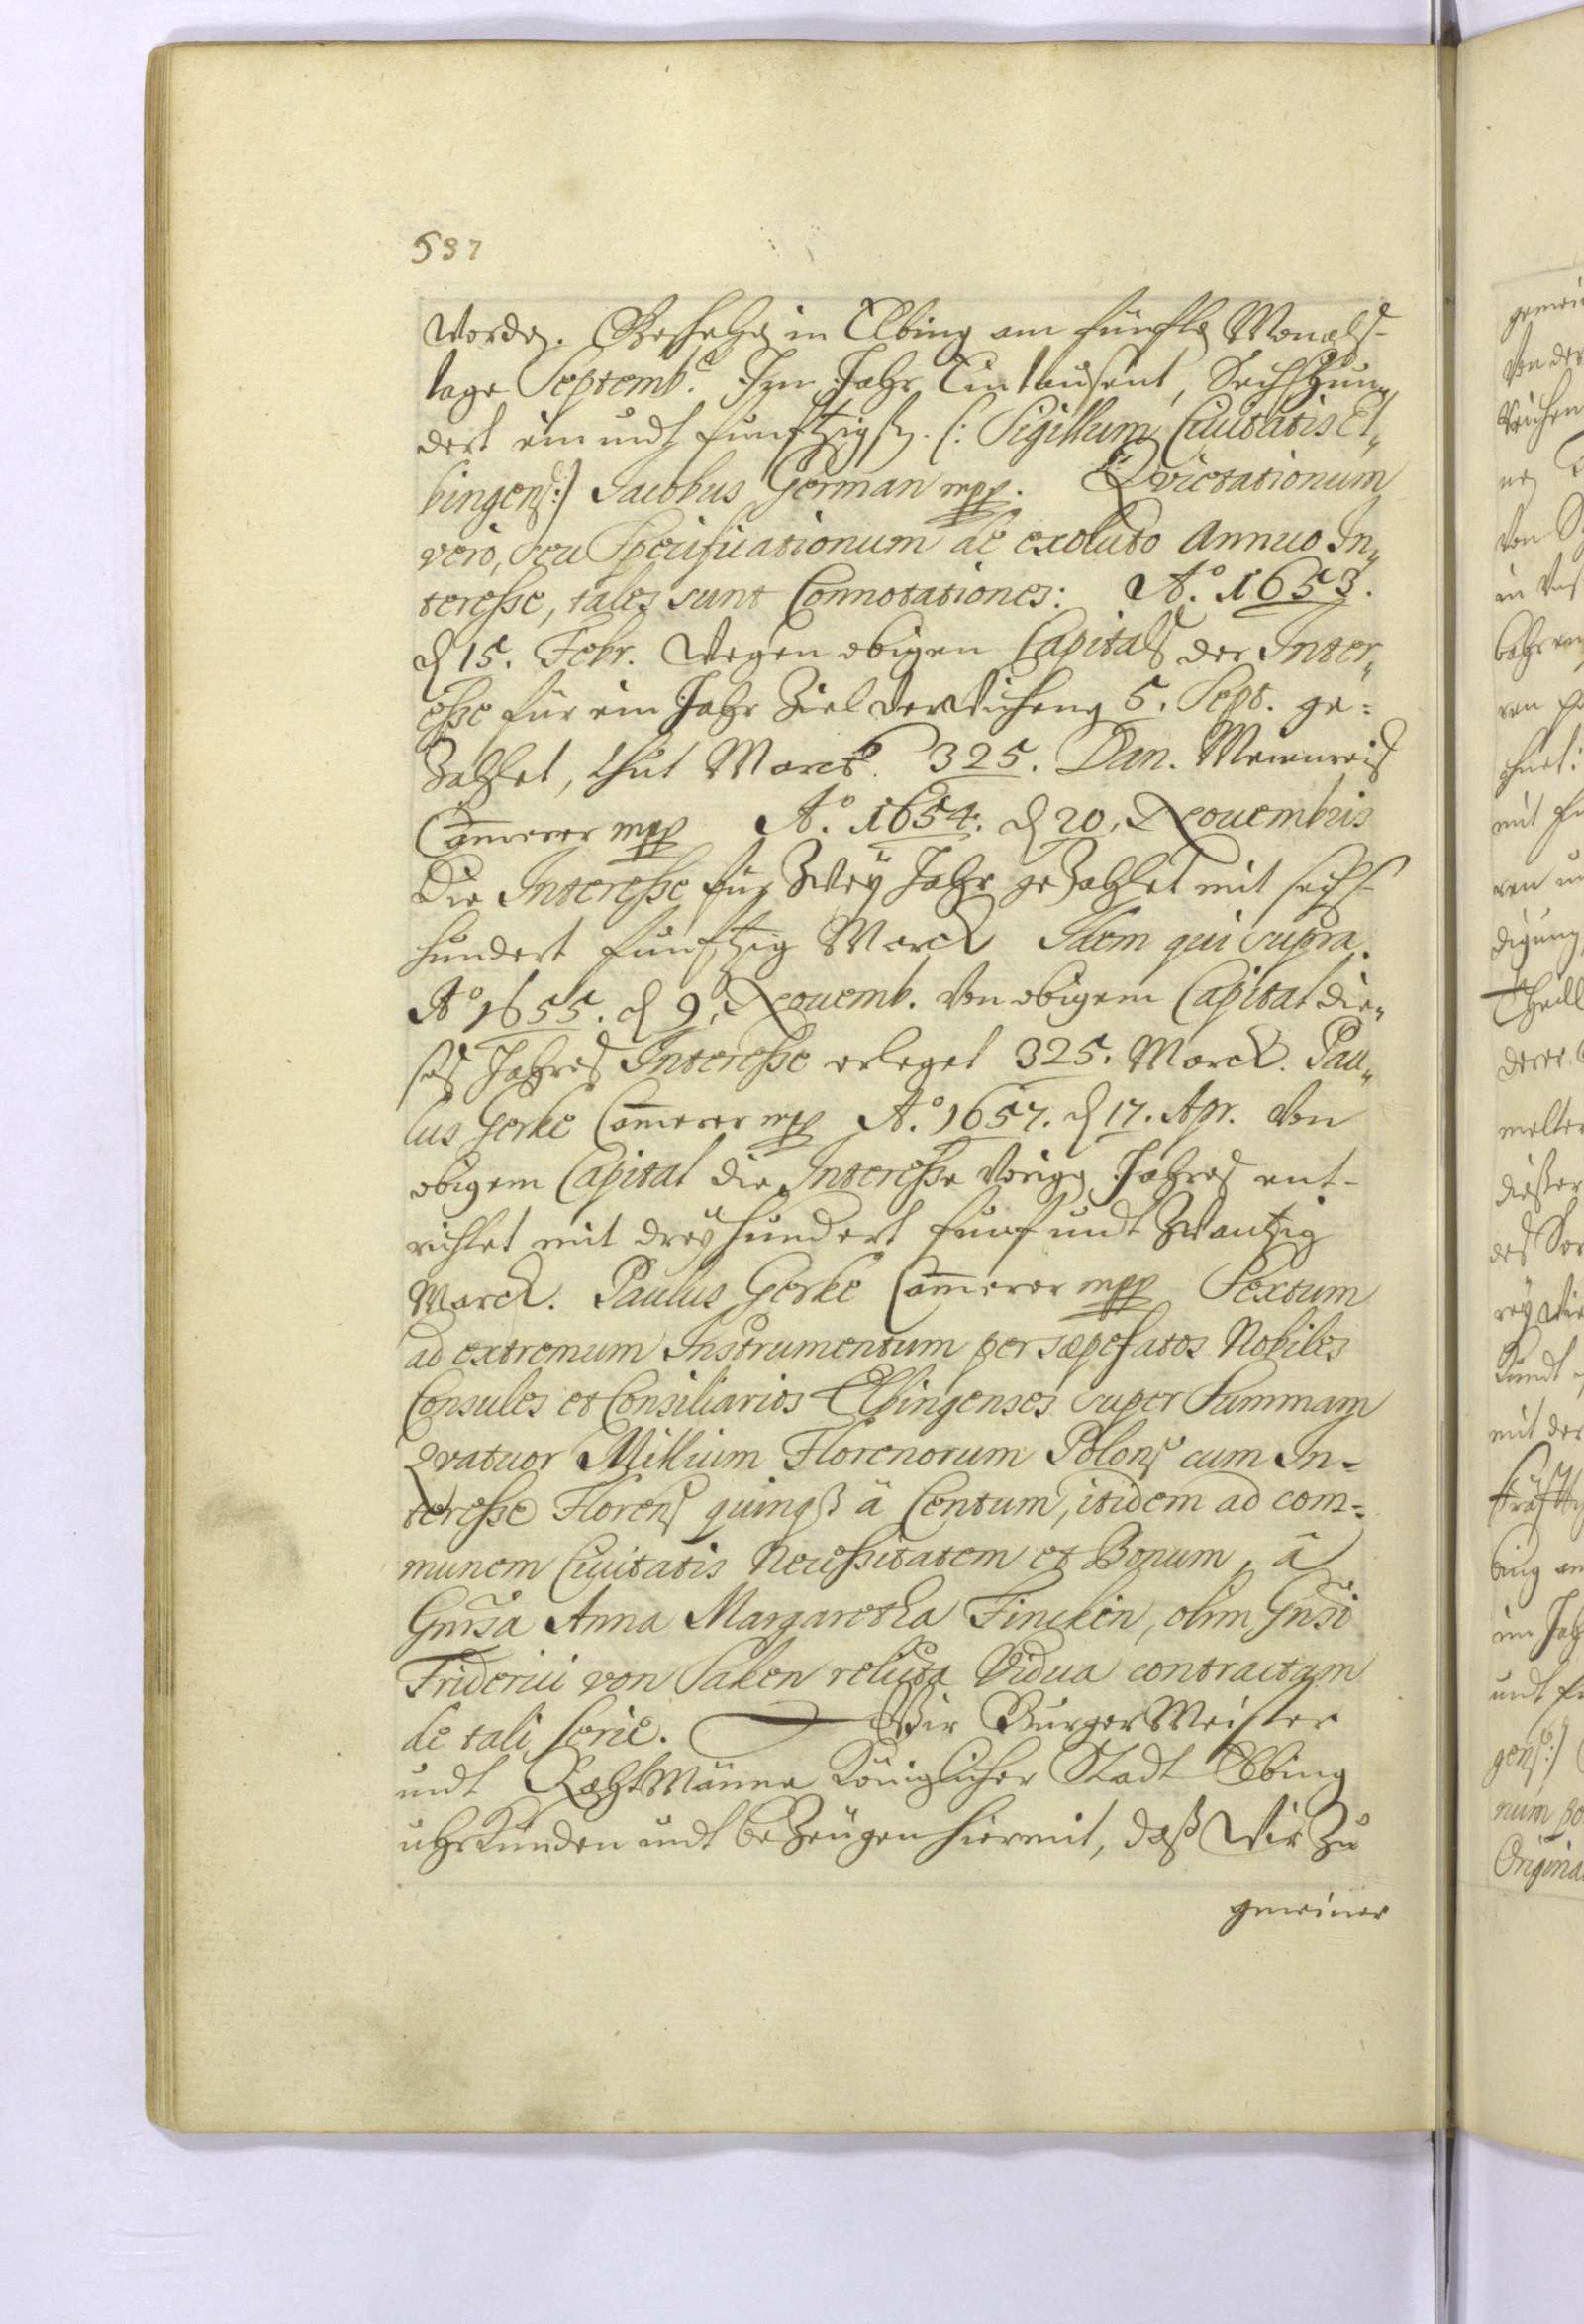 537
worden. Geschehen in Elbing am fünften Monats-
tage Septemb. Im Jahr Eintausent, Sechßhun„
dert ein undt funftzigsten. (: Sigillum Ciuitatis El„
bingens:) Jacobus German mpp. Qvietationum
vero, seu Specificationum de exoluto Annuo In„
teresse, tales sunt Connotationes: Aº. 1653.
d 15. Febr. wegen obigen Capitals der Inter„
esse für ein Jahr Ziel 5. Sept. ge=
zahlet, thut Marck. 325. Dan.
Cam̄erer mpp Aº. 1654. d 20. Nouembris
Die Interesse für Zwey Jahr gezahlet mit sechs-
hundert funftzig Marck Idem qui supra.
Aº 1655. d 9. Nouemb. Von obigem Capital die„
ses Jahres Interesse erleget 325. Marck. Pau„
lus Gerke Cam̄erer mpp Aº. 1657. d 17. Apr. Von
obigem Capital die Interesse vorigen Jahres ent-
richtet mit dreyhundert funf undt Zwantzig
Marck. Paulus Gerke Cam̄erer mpp Sextum
ad extremum Instrumentum per sæpefatos Nobiles
Consules et Consiliarios Elbingenses super Summam
Qvatuor Millium Florenorum Polons cum In-
teresse Florens quinqß â Centum, itidem ad com=
munem Ciuitatis Necessitatem et Bonum, â
Gnr̃sa Anna Margaretha Fincken, olim Gnr̃si
Friderici von Saken relicta Vidua contractam
de tali serie. Wir BurgerMeister
undt RahtMänne Königlicher Stadt Elbing
uhrkunden undt bezeugen hiermit, daß Wir Zu
gemeiner